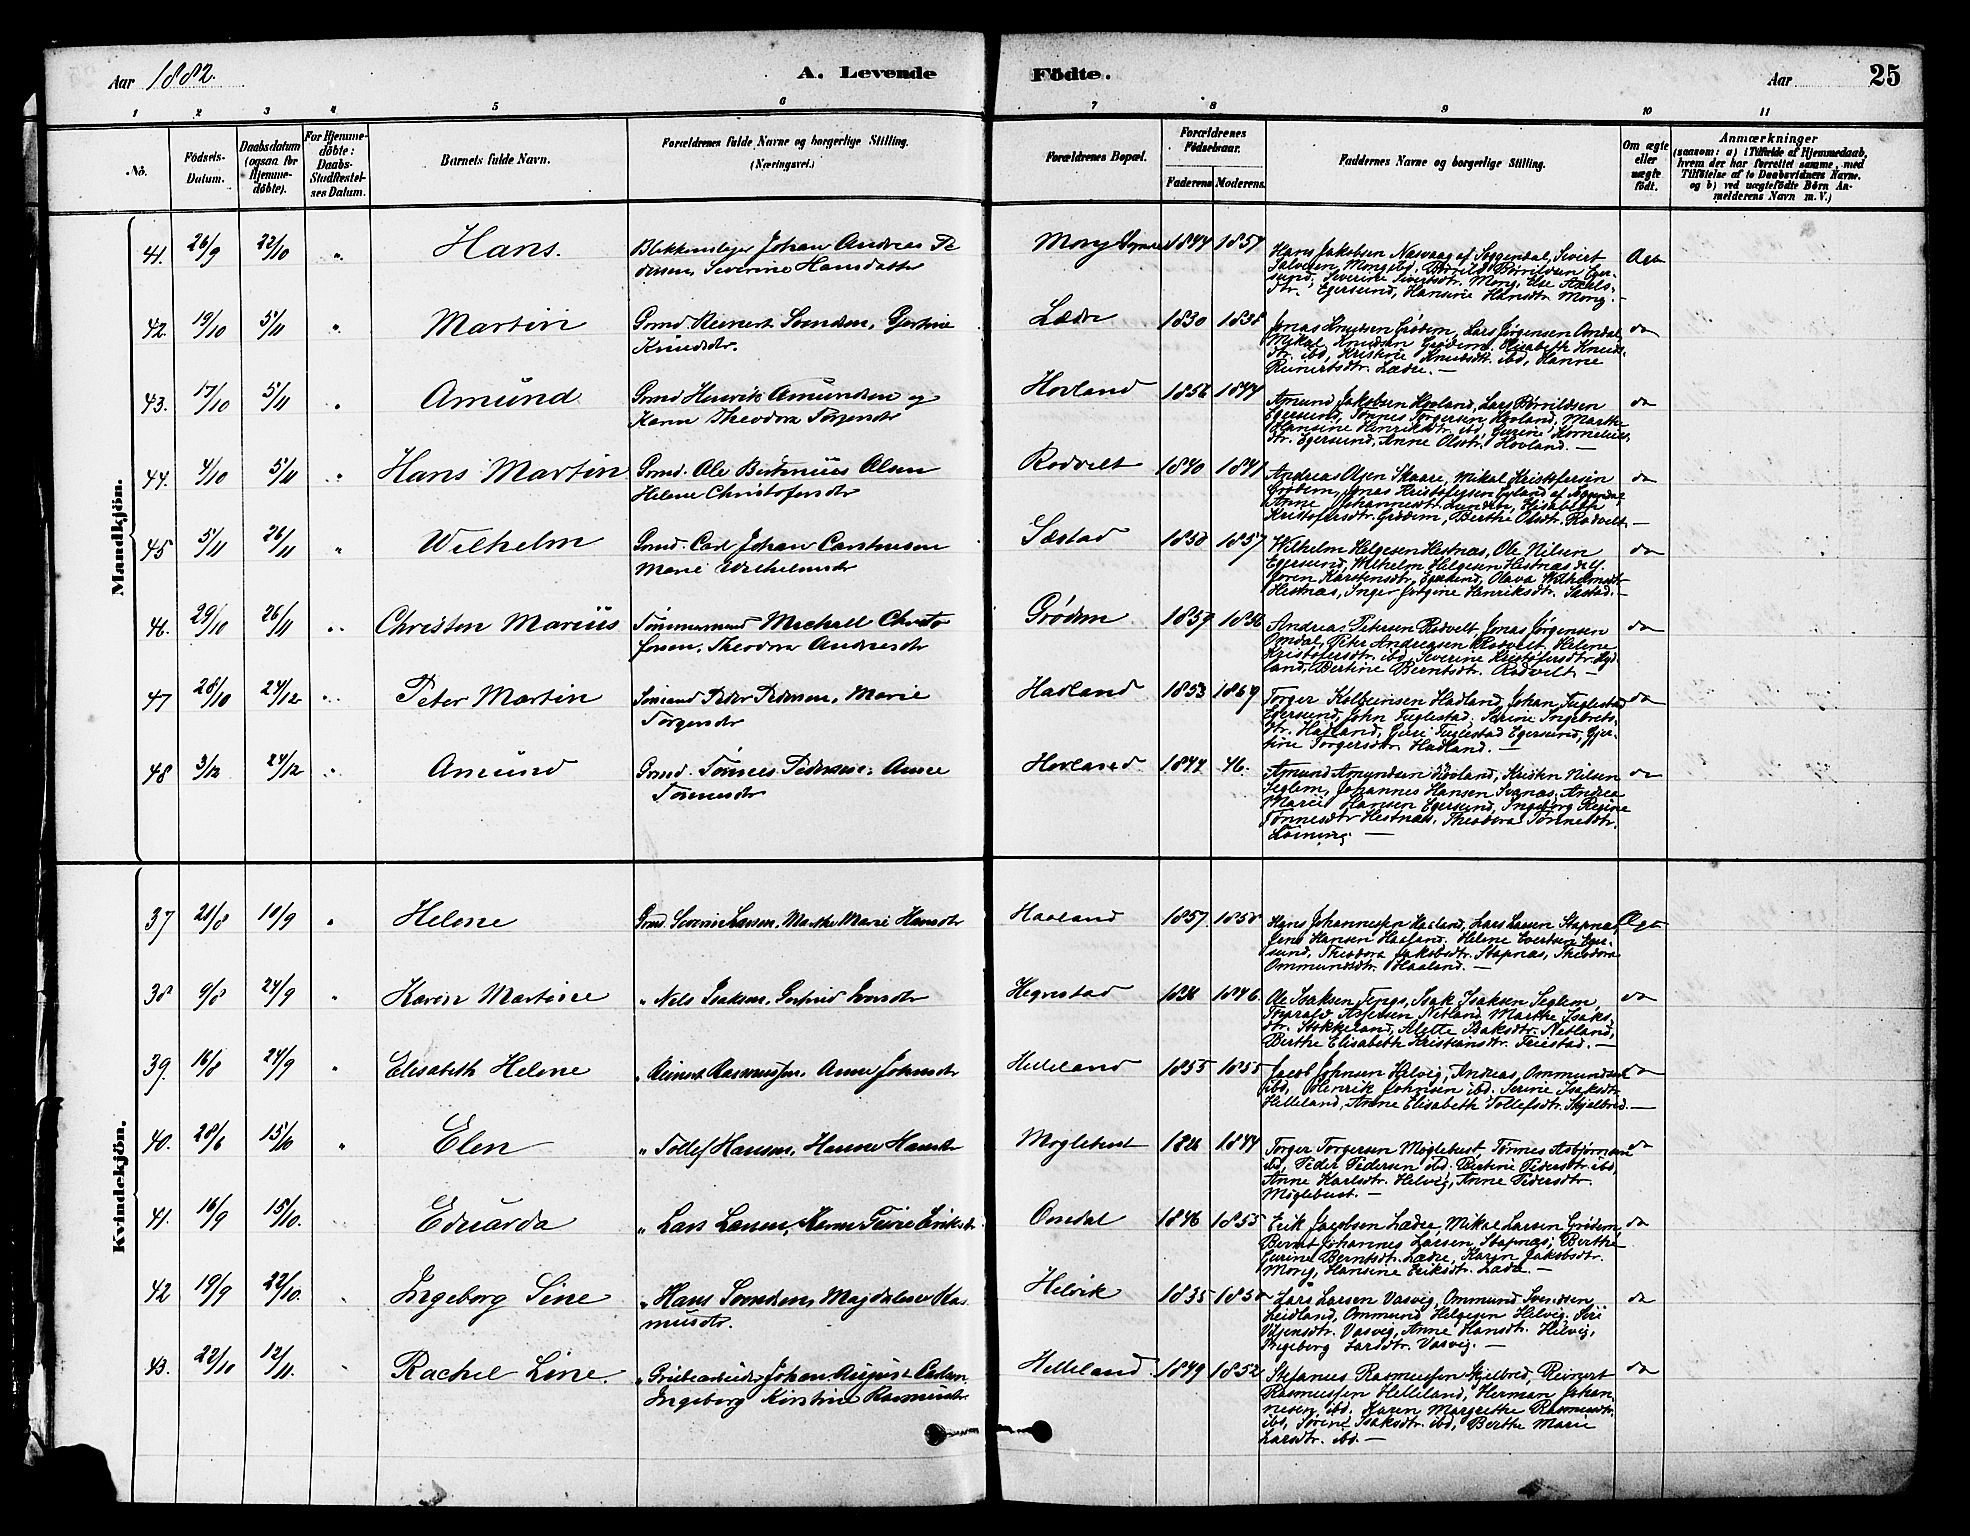 Aar 1882. A. Levende Födte. Aar 25
1 2 3 4 5 6 7 8 9 10 11
No.
Födsels-Datum.
Daabsdatum (ogsaa for Hjemmedöbte).
For Hjemmedöbte: Daabs-Stadfæstelses Datum.
Barnets fulde Navn.
Forældrenes fulde Navne og borgerlige Stilling. (Næringsvei.)
Forældrenes Bopæl.
Forældrenes Födselsaar.
Faderens Moderens.
Faddernes Navne og borgerlige Stilling.
Om ægte eller uægte födt.
Anmærkninger
(saasom: a) i Tilfælde af Hjemmedaab,
hvem der har forrettet samme, med
Tilföielse af to Daabsvidners Navne.
og b) ved uægtefödte Börn An-
melderens Navn m. V.)
Mandkjön.
41. 26/9 22/10 " Hans. Johan Andreas Pe
dersen, Severine Hansdatter
1844 1857
Hans Jakobsen Nasvaag af Soggendal, Sivert
Salvesen Mong
Egersund, Hansine Hansdtr. Mong. —
42. 19/10 5/11 " Martin Grmd Reinert Svendsen, Gjertine
Knudsdtr.
Lædre 1830 1838
Jonas Knudsen Grødem, Lars Jørgensen Omdal,
Mikal Knudsen Grødem. Elisabeth Knuds-
dtr. ibd, Kristine Knudsdtr. ibd, Hanne
Reinertsdtr. Lædre. —
da
43. 17/10 5/11 " Amund Grmd Henrik Amundsen og
Karen Theodora Torgersdtr
Hovland 1856 1844
Amund Jakobsen Hovland, Lars Børrildsen
Egersund, Tønnes Torgersen Hovland, Marthe
Hansine Henriksdtr. ibd, Gurine Kornelius-
dtr. Egersund, Anne Olsdtr. Hovland. —
da
44. 4/10 5/11 " Hans Martin Grmd. Ole Olsen
Helene Christofersdtr
Rodvelt 1840 1841
Andreas Olsen Skaare, Mikal Kristofersen
Grødem, Jonas Kristofersen Eyland af Soggendal,
Anne Johannesdtr. Elisabeth
Kristofersdtr. Grødem, Berthe Olsdtr. Rodvelt. —
da
45 5/11 26/11 " Wilhelm Grmd. Carl Johan Carstensen
Marie Wilhelmsdtr
Sæstad 1850 1857
Wilhelm Helgesen Hestnæs, Ole Nilsen
Egersund, Wilhelm Helgesen Hestnæs
Karstensdtr. Egersund, Olava Wilhelmsdtr
Hestnæs, Inger Jorgine Henriksdtr. Sæstad. —
da
46. 29/10 26/11 " Christen Marius Tømmermand Michall Christo
fersen, Theodora Andreasdtr
Grødem 1859
Andreas Petersen Rodvelt, Jonas Jørgensen
Omdal, Peter Andreasen Rodvelt, Helene
Kristofersdtr. ibd, Severine Kristofersdtr.
land, Bertine Berntsdtr. Rodvelt. —
da
47 28/10 24/12 " Peter Martin Sømand Peder Pedersen, Marie
Torgersdtr
Hadland 1853
Torger Kolbeinsen Hadland, Johan Fuglestad
Egersund, John Fuglestad, Serine Ingebrets-
dtr. Hadland, Fuglestad Egersund, Gjer-
tine Torgersdtr. Hadland. —
da
48 3/12 24/12 " Amund Grmd. Tønnes Pedersen, Anne
Tønnesdtr
Hovland 1844 46.
Amund Amundsen Hovland, Kristen Nilsen
Seglem, Johannes Hansen Svanæs, Andrea
Marie Hansen Egersund, Ingeborg Regine
Tønnesdtr Hestnæs. Theodora Tønnesdtr.
da
Kvindekjön.
37 21/8 10/9 " Helene Grmd. Severin Larsen, Marthe Marie Hansdtr
Haaland 1857. 1858
Hans Johannessen Haaland, Lars Larsen Stapnæs,
Jens Hansen Haaland. Helene Evertsen Eger-
sund, Theodora Jakobsdtr. Stapnæs, Theodora
Ommundsdtr. Haaland. —
Ægte
38 9/8 24/9 " Karen Martine " Nels Isaksen, Gertrud
Hegrestad 1846.
Ole Isaksen Tengs, Isak Isaksen Seglem,
Netland, Marthe Isaks-
dtr. Stokkeland, Alette Isaksdtr. Netland,
Berthe Elisabeth Kristiansdtr. Feiestad. —
da
39. 16/8 24/9 " Elisabeth Helene " Reinert Rasmussen, Anne Johnsdtr
Helleland 1855 1855
Jacob Johnsen Helvig, Andreas Ommundsen
ibd, Henrik Johnsen ibd. Serine Isaksdtr.
Helleland, Anne Elisabeth Tollefsdtr. Skjelbred. —
da
40. 28/6 15/10 " Elen " Tollef Hansen, Hanne Hansdtr
Møglebust 1844
Torger Torgersen Møglebust, Tønnes Asbjørnsen
ibd, Peder Pedersen ibd. Bertine Pedersdtr. ibd,
Anne Karlsdtr. Helvig, Anne Pedersdtr.
Møglebust. —
da
41. 16/9 15/10. Eduarda " Lars Larsen, Karen Eriksdtr.
Omdal 1846 1855
Erik Jacobsen Lædre, Mikal Larsen Grødem
Bernt Johannes Larsen Stapnæs, Berthe
Gurine Berntsdtr. Lædre, Karen Jakobsdtr.
Mong, Hansine Eriksdtr. Lædre. —
da
42 19/9 22/10. Ingeborg Sine " Hans Svendsen, Magdalene Ras
musdtr.
Helvik 1835 1850
Lars Larsen Vasvig, Ommund Svendsen
Leidland, Ommund Helgesen Helvig, Siri
Vasvig, Anne Hansdtr. Helvig,
Ingeborg Larsdtr. Vasvig. —
da
43. 22/10 12/11. Rachel Line. " Grubearbeider Johan August Carlsen
Ingeborg Kirstine Rasmusdtr
Helleland. 1849 1852
Stefanus Rasmussen Skjelbred, Reinert
Rasmussen Helleland, Herman Johan-
nesen ibd. Karen Margrethe Rasmusdtr.
ibd, Sørine Isaksdtr. ibd, Berthe Marie
Larsdtr. ibd. —
da